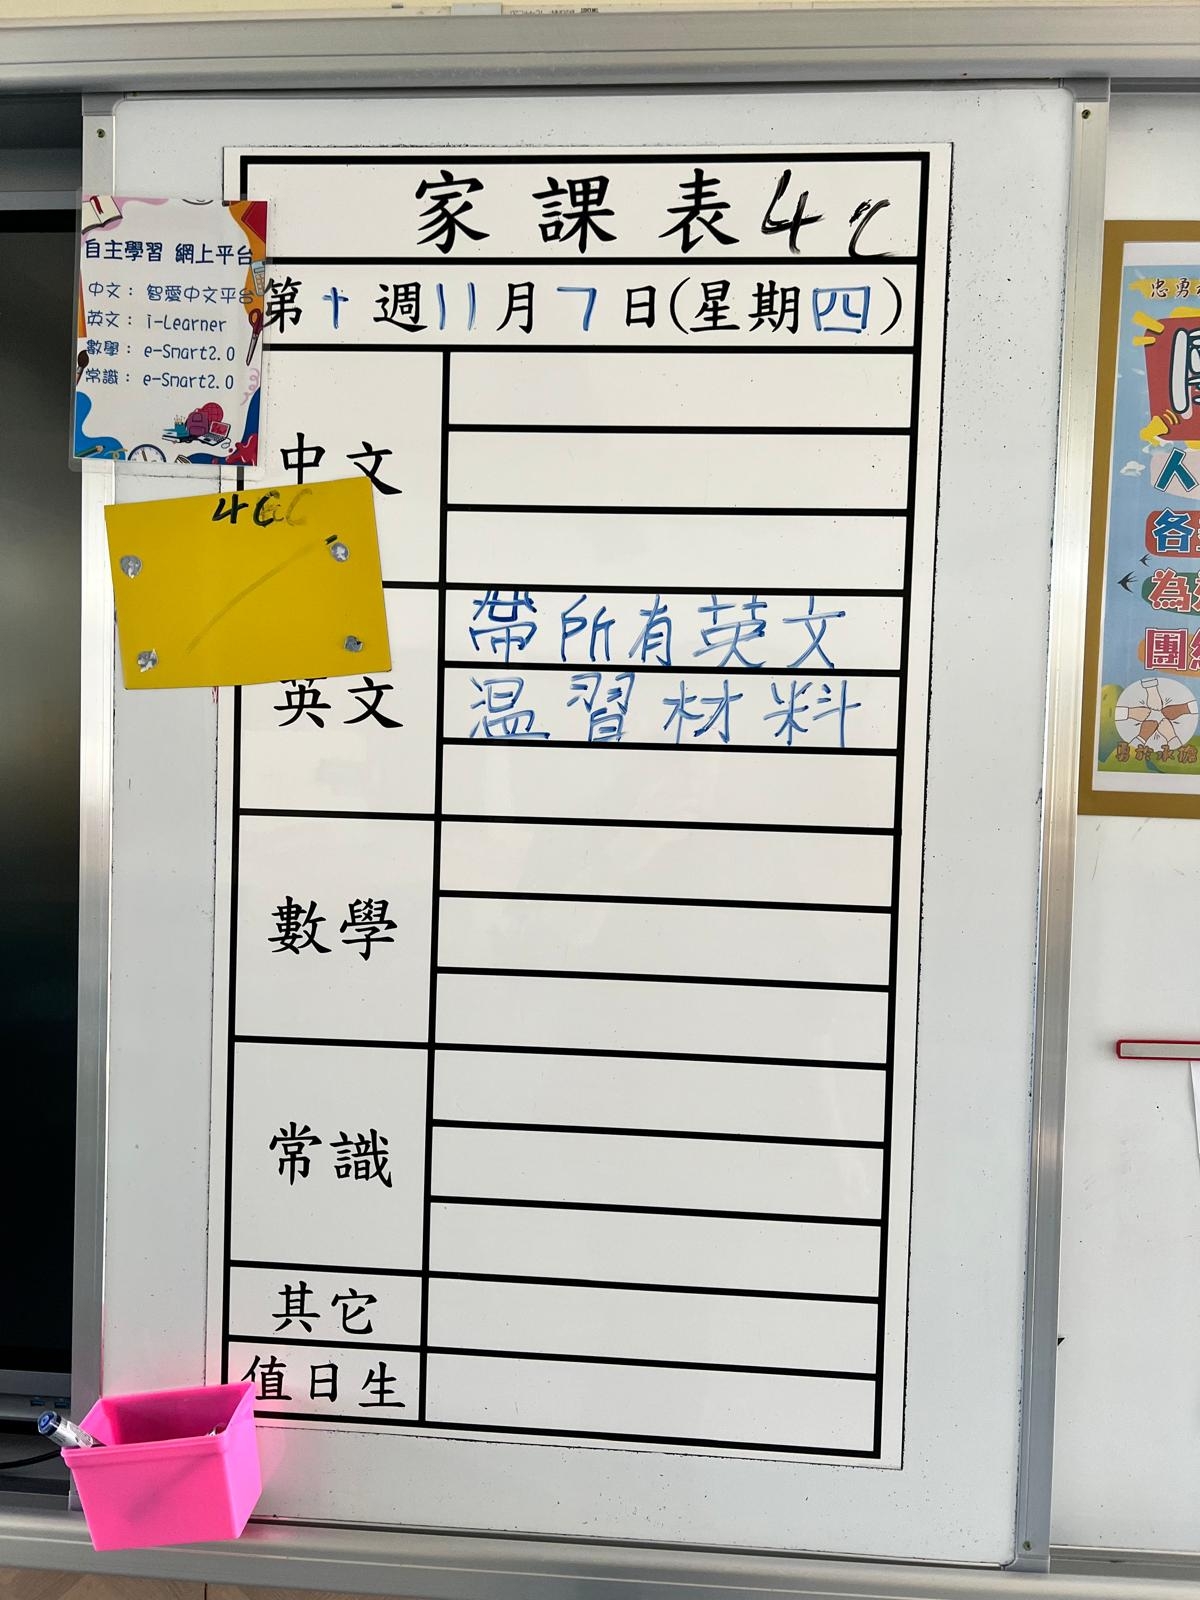 家課表4C
第十週11月7日(星期四)
自主學習 網上平台
中文：智愛中文平台
英文：i-Learner
數學：e-Smart2.0
常識：e-Smart2.0
中文
4C
英文
帶所有英文
温習材料
數學
常識
其它
值日生
忠勇
人
各
為
團
勇於承擔